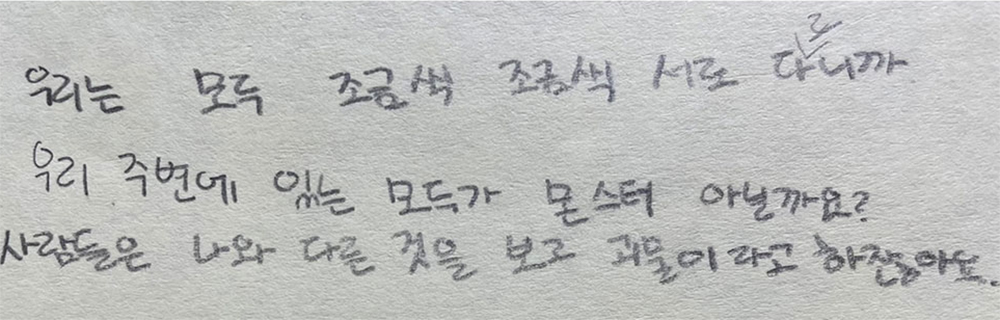 우리는 모두 조금씩 조금씩 서로 다르니까
우리 주변에 있는 모두가 몬스터 아닐까요?
사람들은 나와 다른 것을 보고 괴물이라고 하잖아요.